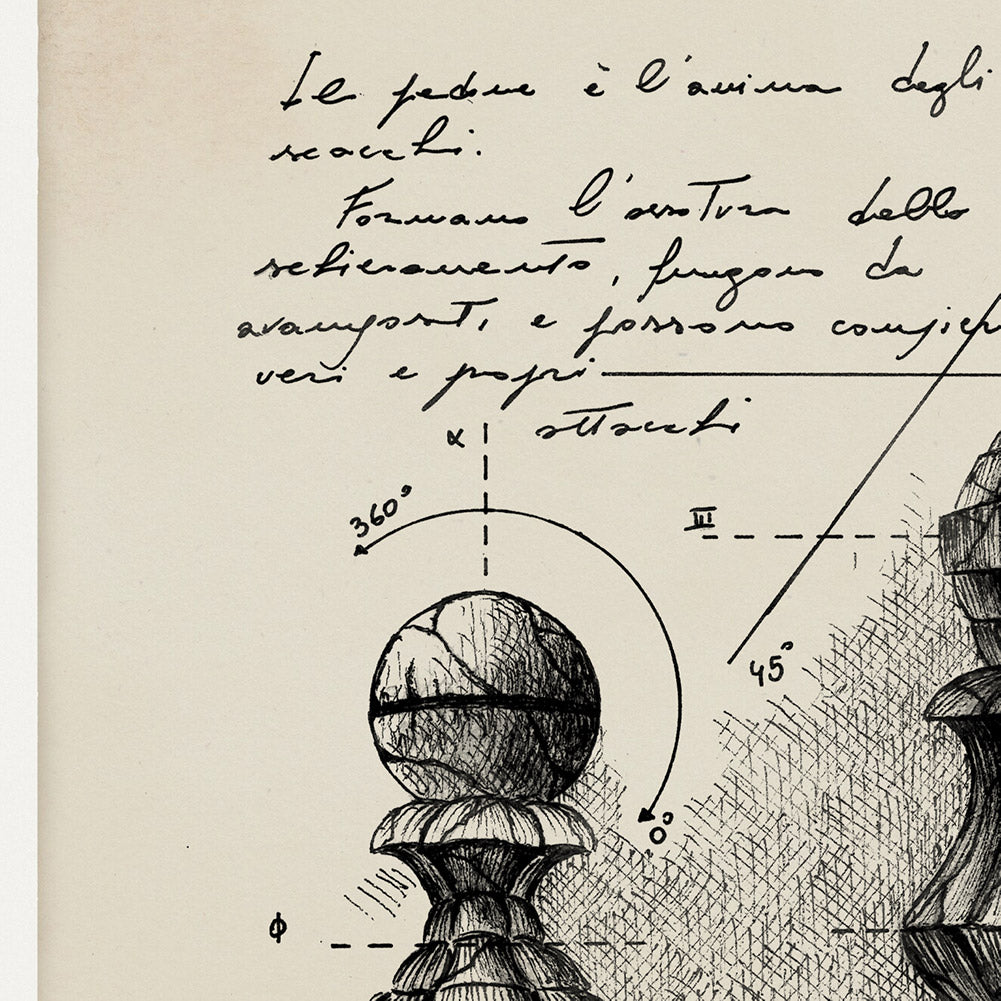 Il pedone è l'anima degli
scacchi.
Formano l'ossatura dello
schieramento, fungono da
avamposti, e possono compier
veri e propri
attacchi
α
360°
III
45°
0°
ϕ